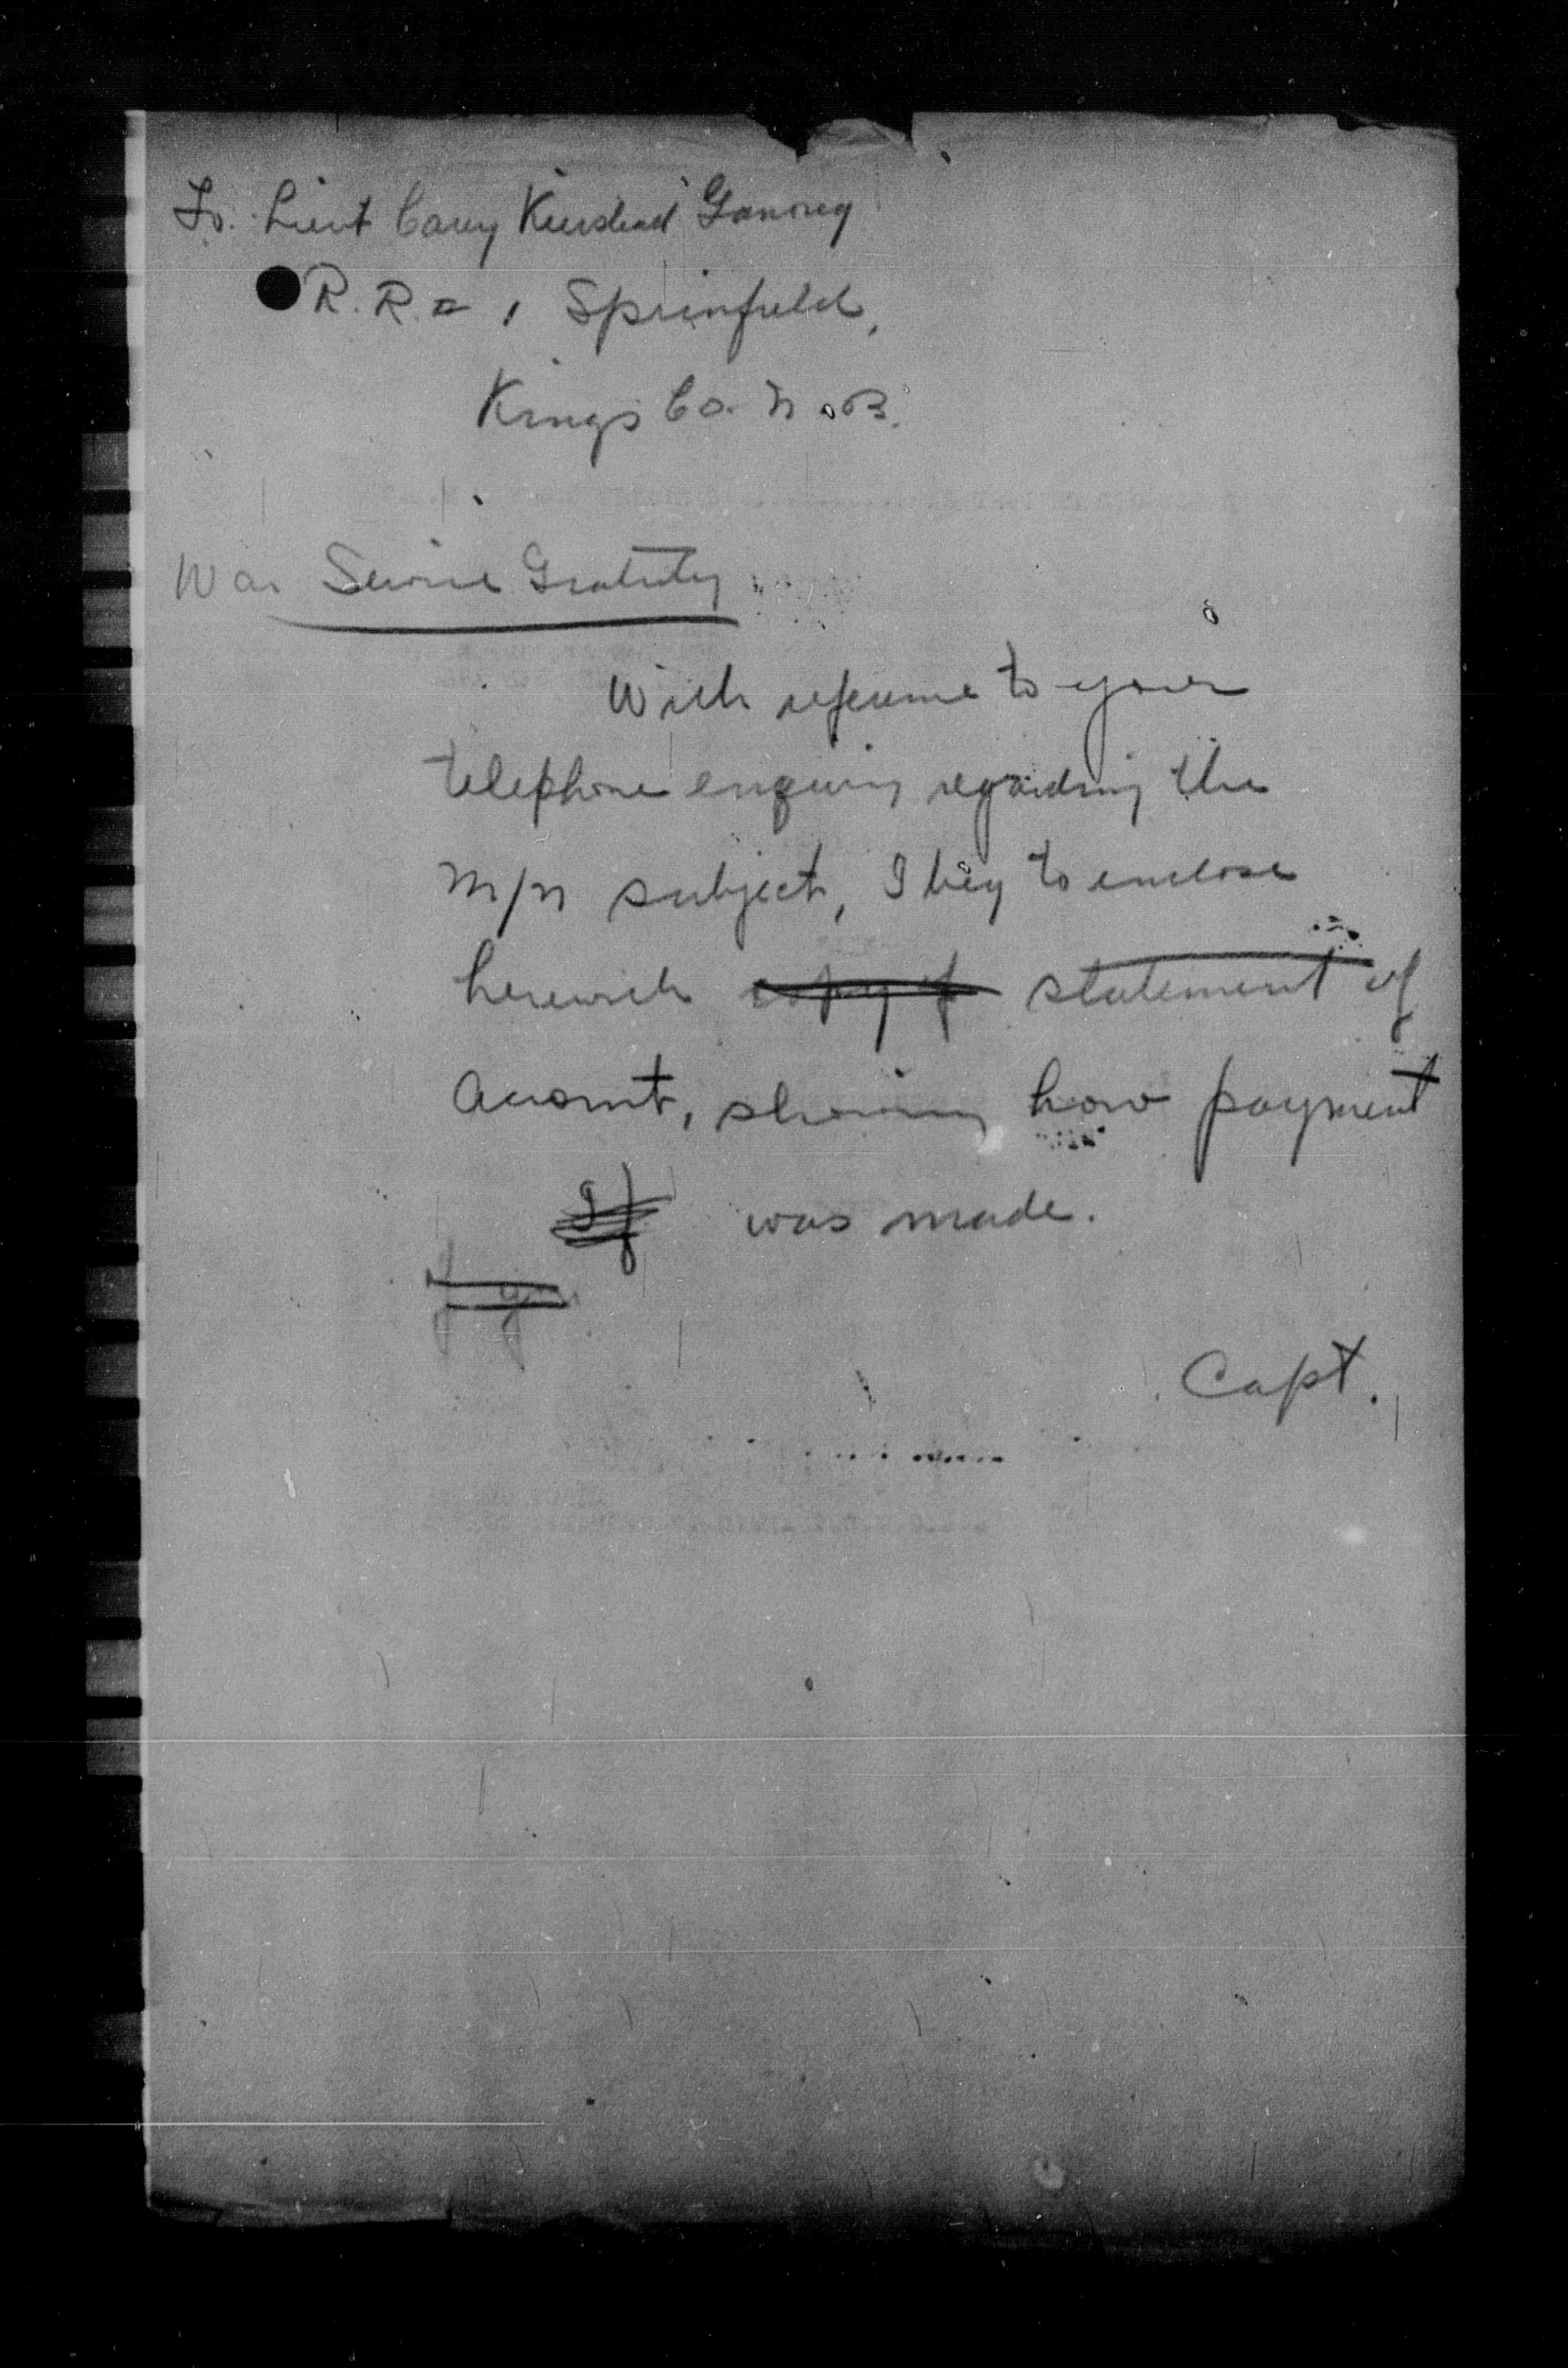 To. Lieut Carey Kierstead Ganong
R.R. # 1 Sprinfield,
Kings Co. N.B.
War Service Gratuity
With reference to your
telephone enquiry regarding the
m/n subject, I beg to enclose
herewith copy of statement of
Account, showing how payment
If was made.
If you
Capt.